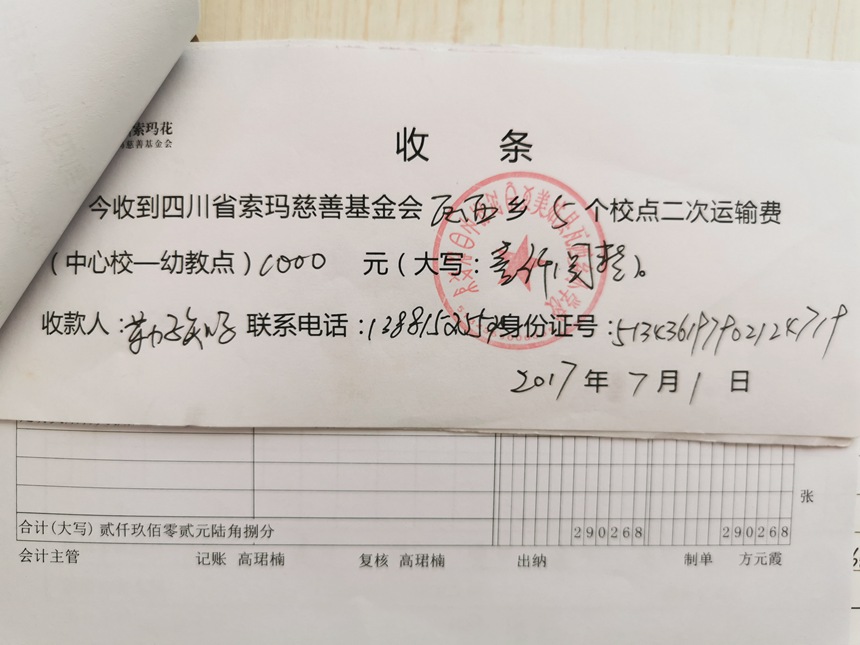 索玛花
慈善基金会
收 条
今收到四川省索玛慈善基金会瓦西乡 5 个校点二次运输费
(中心校—幼教点)1000 元(大写:壹仟圆整)。
收款人: 联系电话: 身份证号:513436197902124719
2017年 7月1日
张
合计(大写) 贰仟玖佰零贰元陆角捌分 290268 290268
会计主管 记账 高珺楠 复核 高珺楠 出纳 制单 方元霞